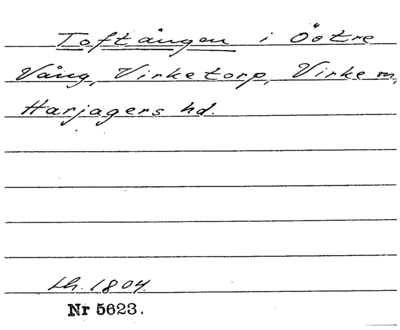 Toftången i Östre
Vång, Virketorp, Virke m,
Harjagers hd.
Lh. 1804.
Nr 5623.